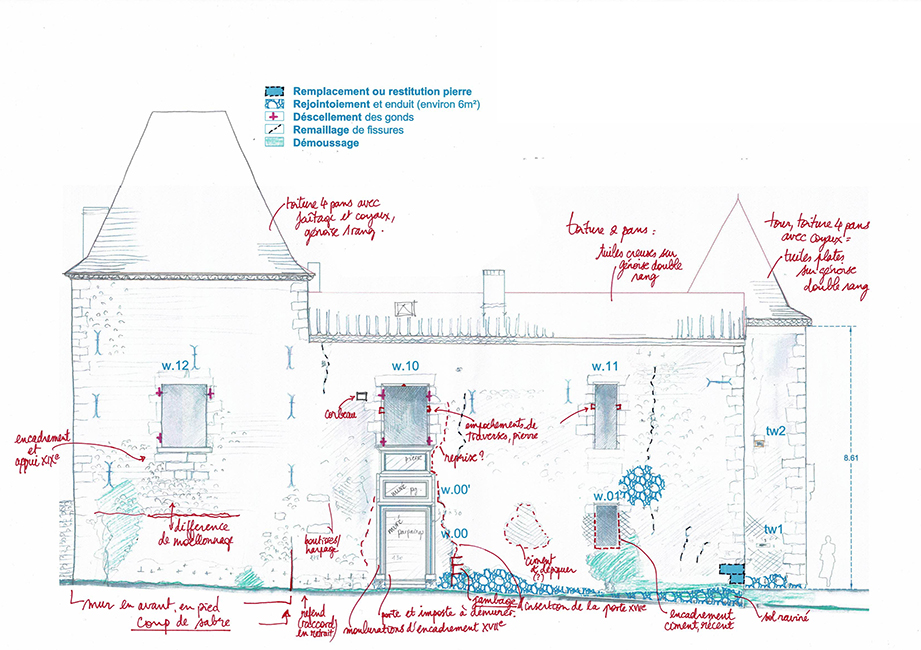 Remplacement ou restitution pierre
Rejointoiement et enduit (environ 6m²)
Déscellement des gonds
Remaillage de fissures
Démoussage
toiture 4 pans avec
faîtage et coyaux,
génoise 1 rang.
toiture 2 pans :
tuiles creuses sur
génoise double
rang
tour, toiture 4 pans
avec coyaux =
tuiles plates
sur génoise
double rang
w.12
w.10
w.11
corbeau
empochements de
traverses, pierre
tw2
8.61
encadrement
et
appui XIXe
reprise ?
pierre
w.00'
muré
w.01
différence
de moellonnage
boutisses/
harpage
muré
parpaings
w.00
tw1
ciment
à dépiquer
(?)
mur en avant, en pied
coup de sabre
refend
(raccord)
en retrait
porte et imposte à démurer.
moulurations d'encadrement XVIIe
jambage
insertion de la porte XVIIe
encadrement
ciment, récent
sol raviné